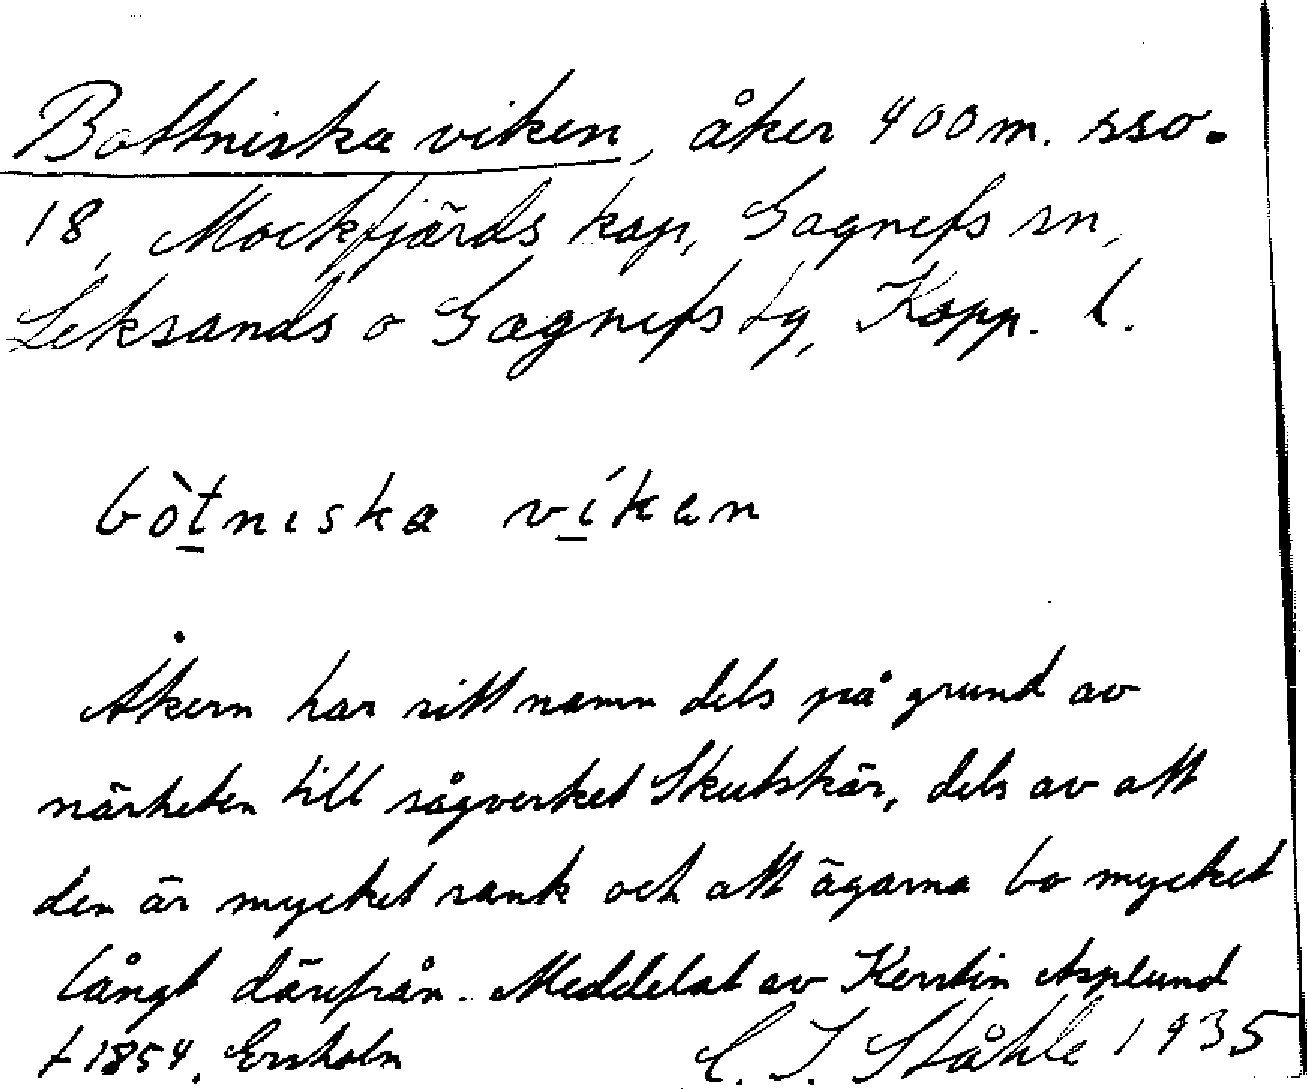 Bottniska viken, åker 400 m. sso.
18, Mockfjärds kap, Gagnefs sn,
Leksands o Gagnefs tg, Kopp. l.
bòtniska víken
Åkern har sitt namn dels på grund av
närheten till sågverket Skutskär, dels av att
den är mycket sank och att ägarna bo mycket
långt därifrån. Meddelat av Kerstin Asplund
f 1854, Ersholn
C. I. Ståhle 1935